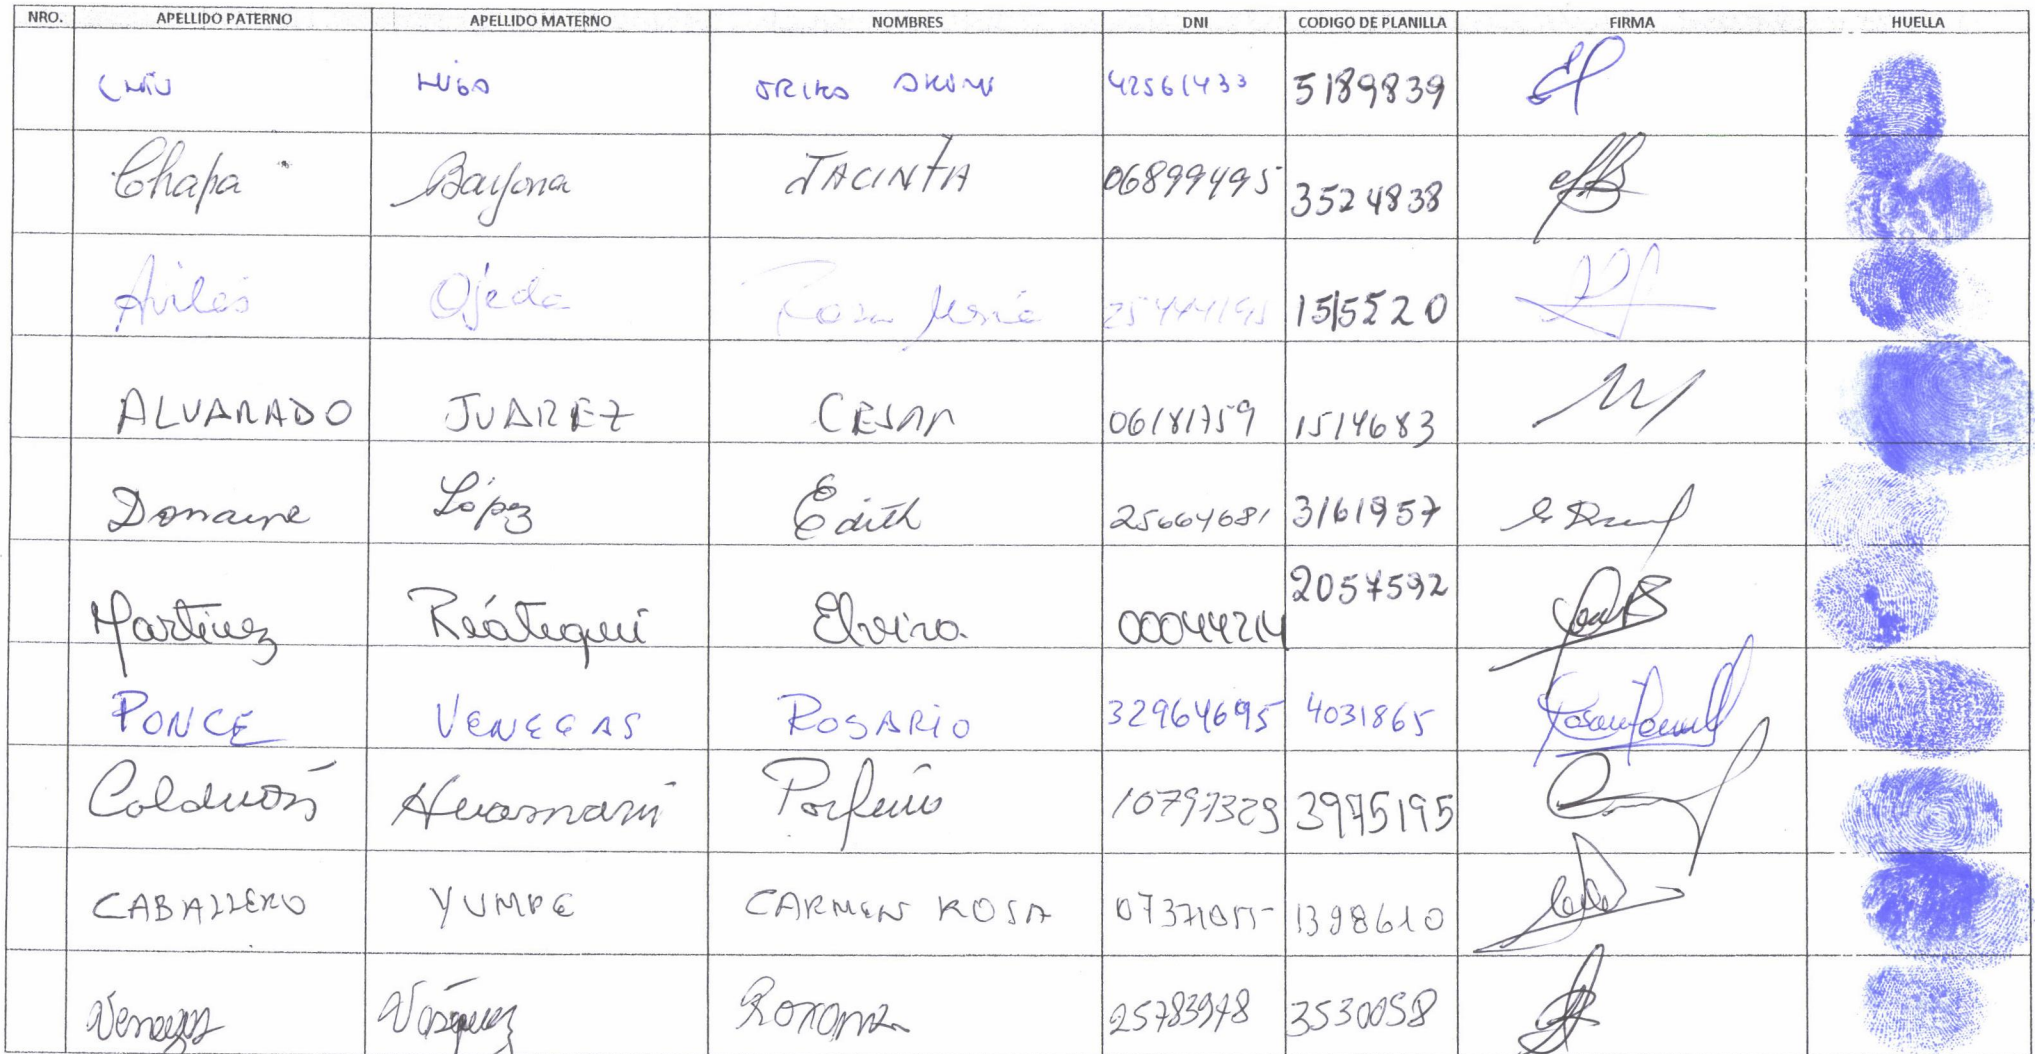 NRO. APELLIDO PATERNO APELLIDO MATERNO NOMBRES DNI CODIGO DE PLANILLA FIRMA HUELLA
42561433 5189839
Chapa Bayona JACINTA 06899495 3524838
Avilés Ojeda Rosa María 1515520
ALVARADO JUAREZ CESAR 06181759 1514683
Domaine López Edith 25664681 3161957
Martínez Reátegui Elvira 00044214 2057592
PONCE VENEGAS ROSARIO 32964695 4031865
Calderón Huamaní Porfirio 10797329 3975195
CABALLERO YUMPE CARMEN ROSA 07371055 1398610
Venegas Vásquez Roxana 25783978 3530058